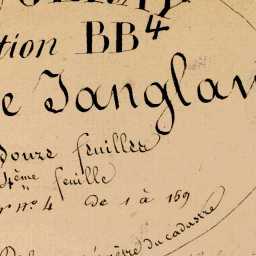 tion BB⁴
e Janglar
Douze feuilles
4ème feuille
r nº 4 De 1 à 159
du cadastre